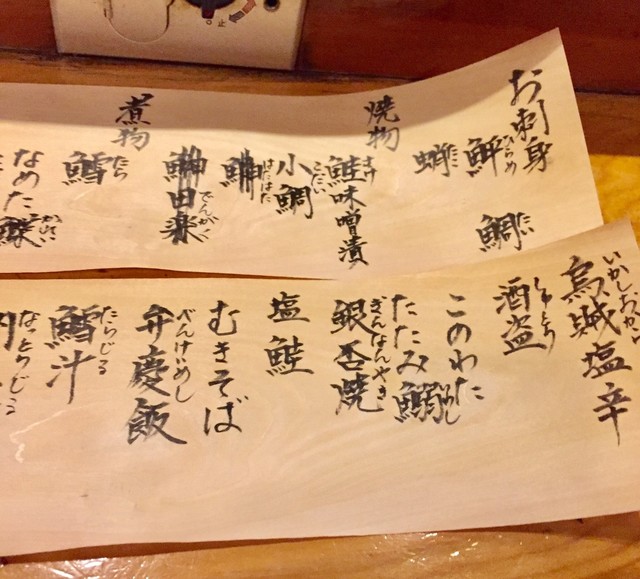 お刺身
鮃 ひらめ
鯛 たい
蛸 たこ
焼物
鮭味噌漬 さけ
小鯛 こだい
はたはた
煮物
田楽 でんがく
鱈 たら
なめた
烏賊塩辛 いかしおから
酒盗 しゅとう
このわた
たたみ鰯 いわし
銀杏焼 ぎんなんやき
塩鮭
むきそば
弁慶飯 べんけいめし
鱈汁 たらじる
なっとうじる